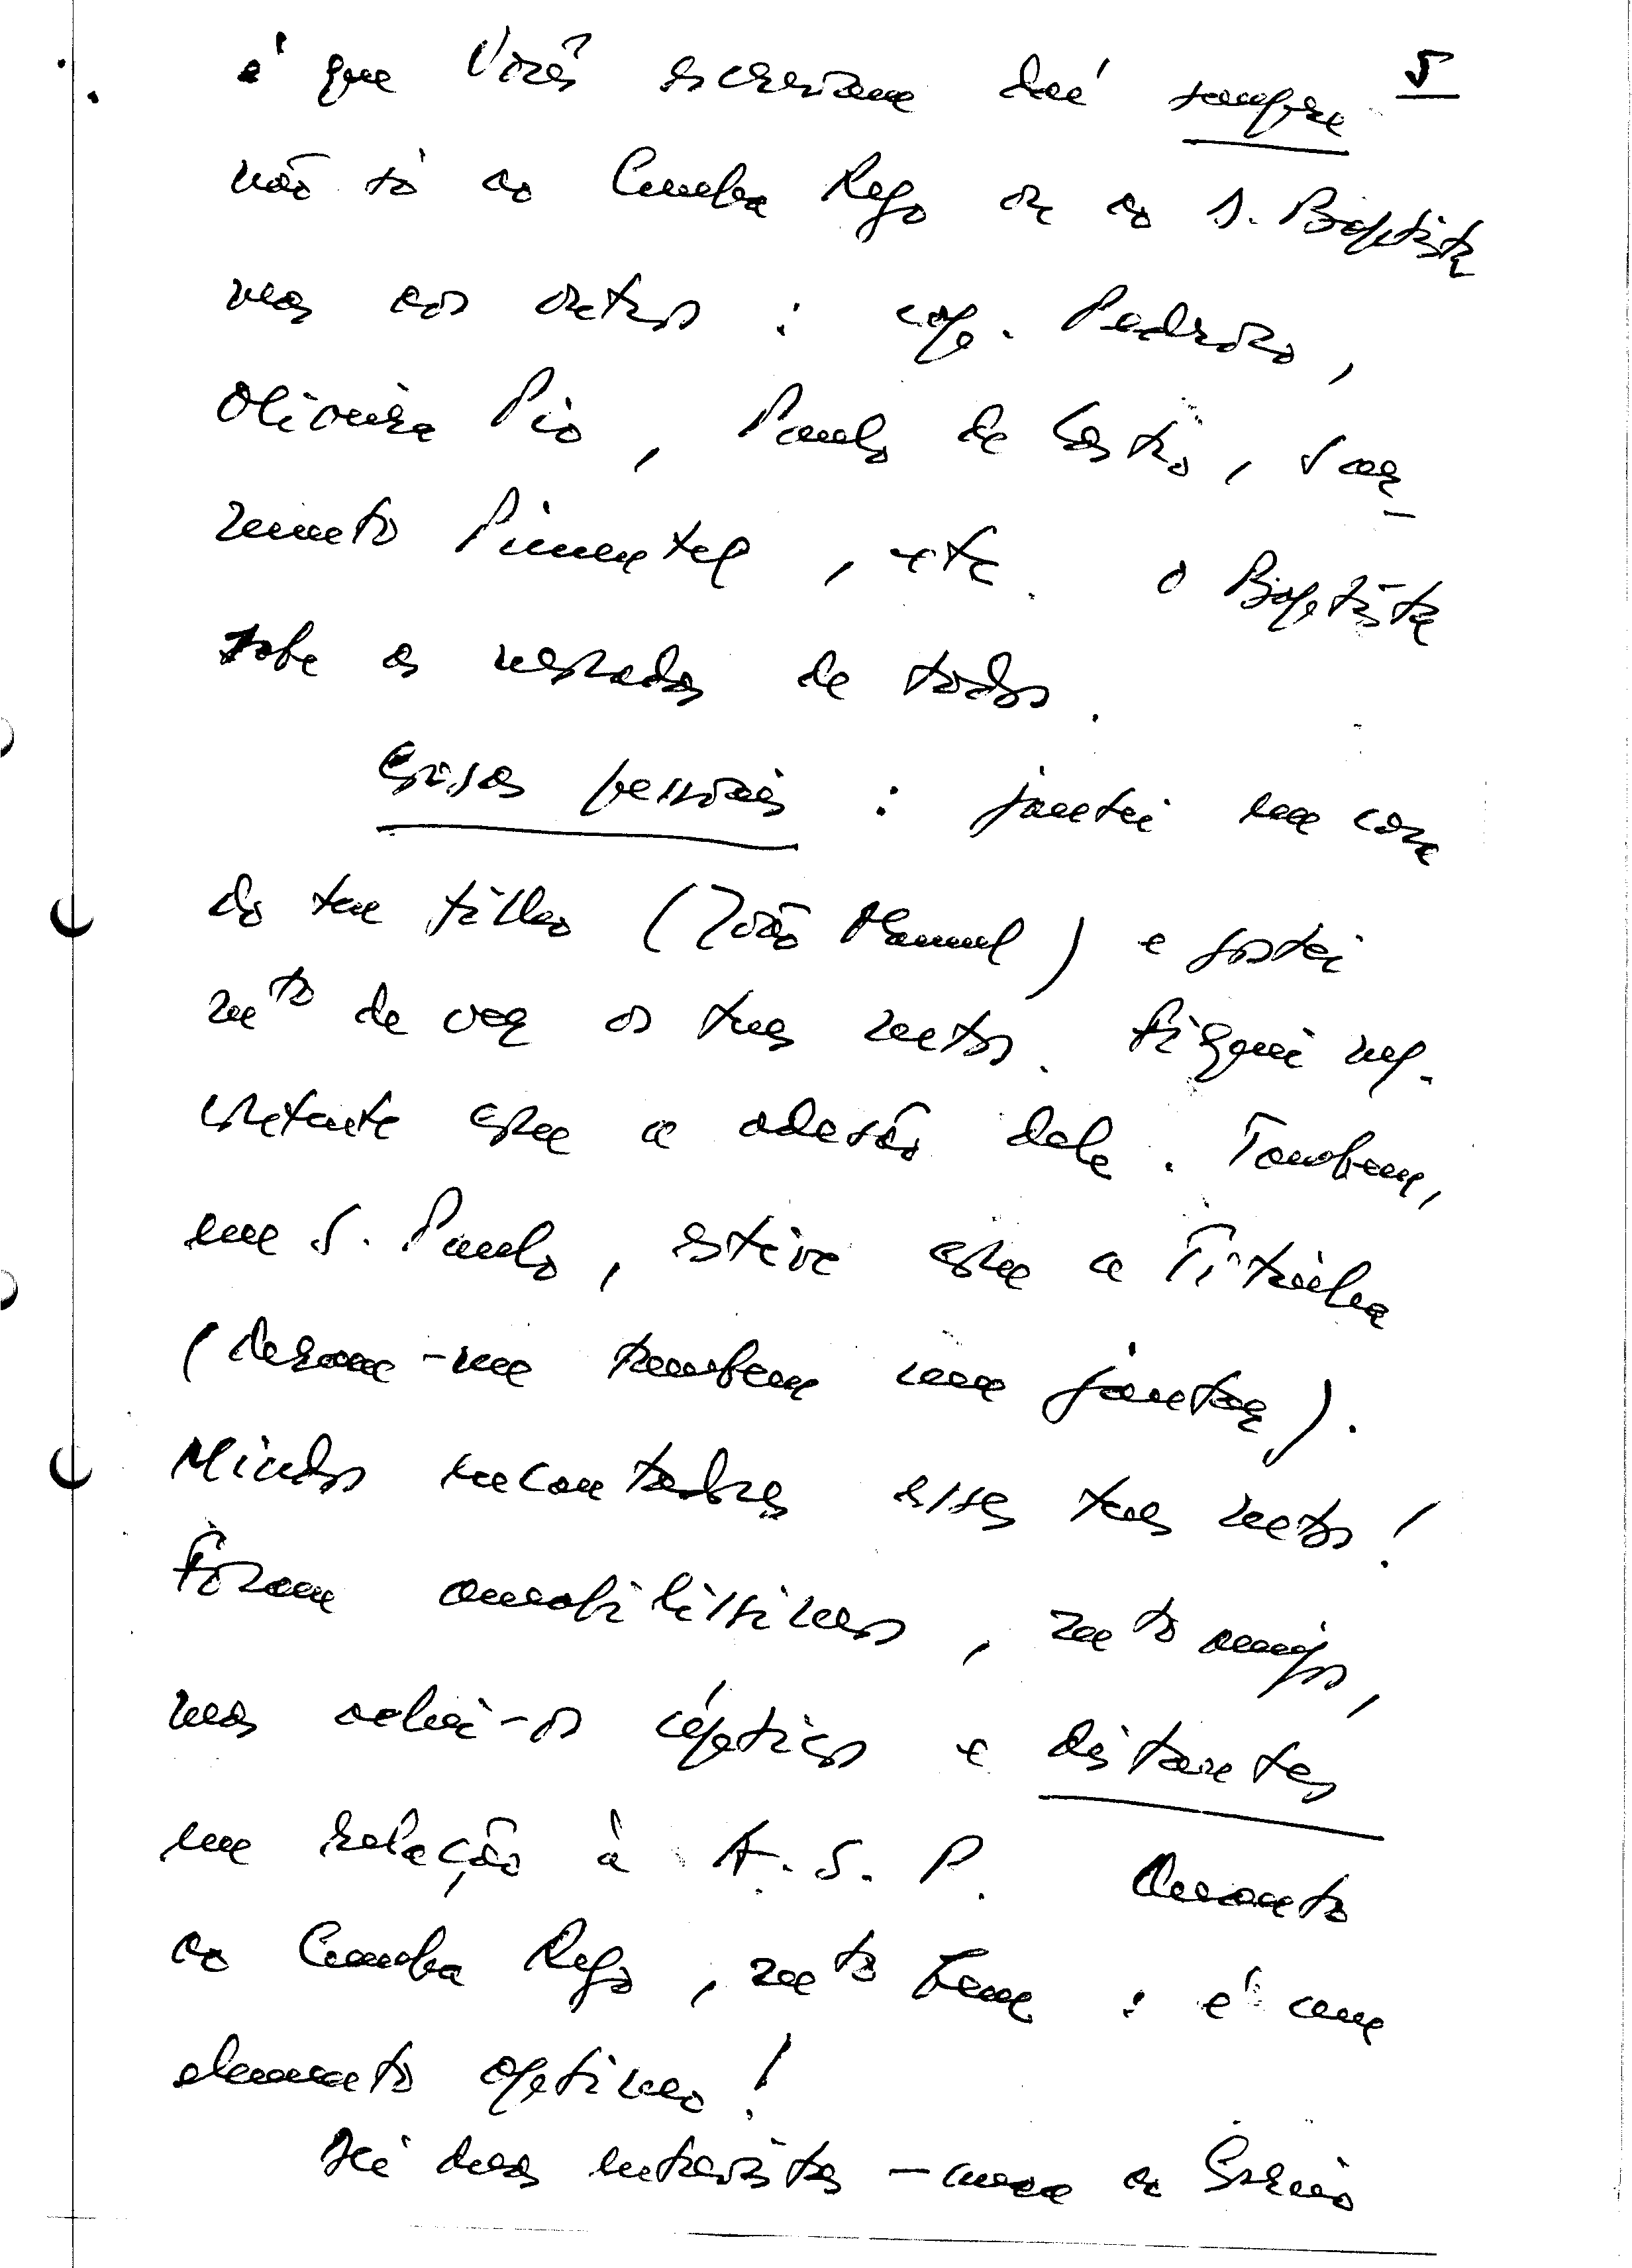 é que Vocês escrevam daí sempre 5
não só ao Cunha Rego ou ao S. Baptista
mas aos outros : cap. Pedroso,
Oliveira Pio, Paulo de Castro, Sar-
mento Pimentel, etc. O Baptista
sabe as moradas de todos.
Coisas pessoais : jantei em casa
do teu filho (João Manuel) e gostei
mto de ver os teus netos. Fiquei mto.
contente com a adesão dele. Tambem,
em S. Paulo, estive com a Titinha
(deram-me tambem um jantar).
Miudos encantadores esses teus netos!
Foram amabilissimos, mto amigos,
mas achei-os cépticos e distantes
em relação à A. S. P. Quanto
ao Cunha Rego, mto bem : é um
elemento optimo!
Dei duas entrevistas - uma ao Correio